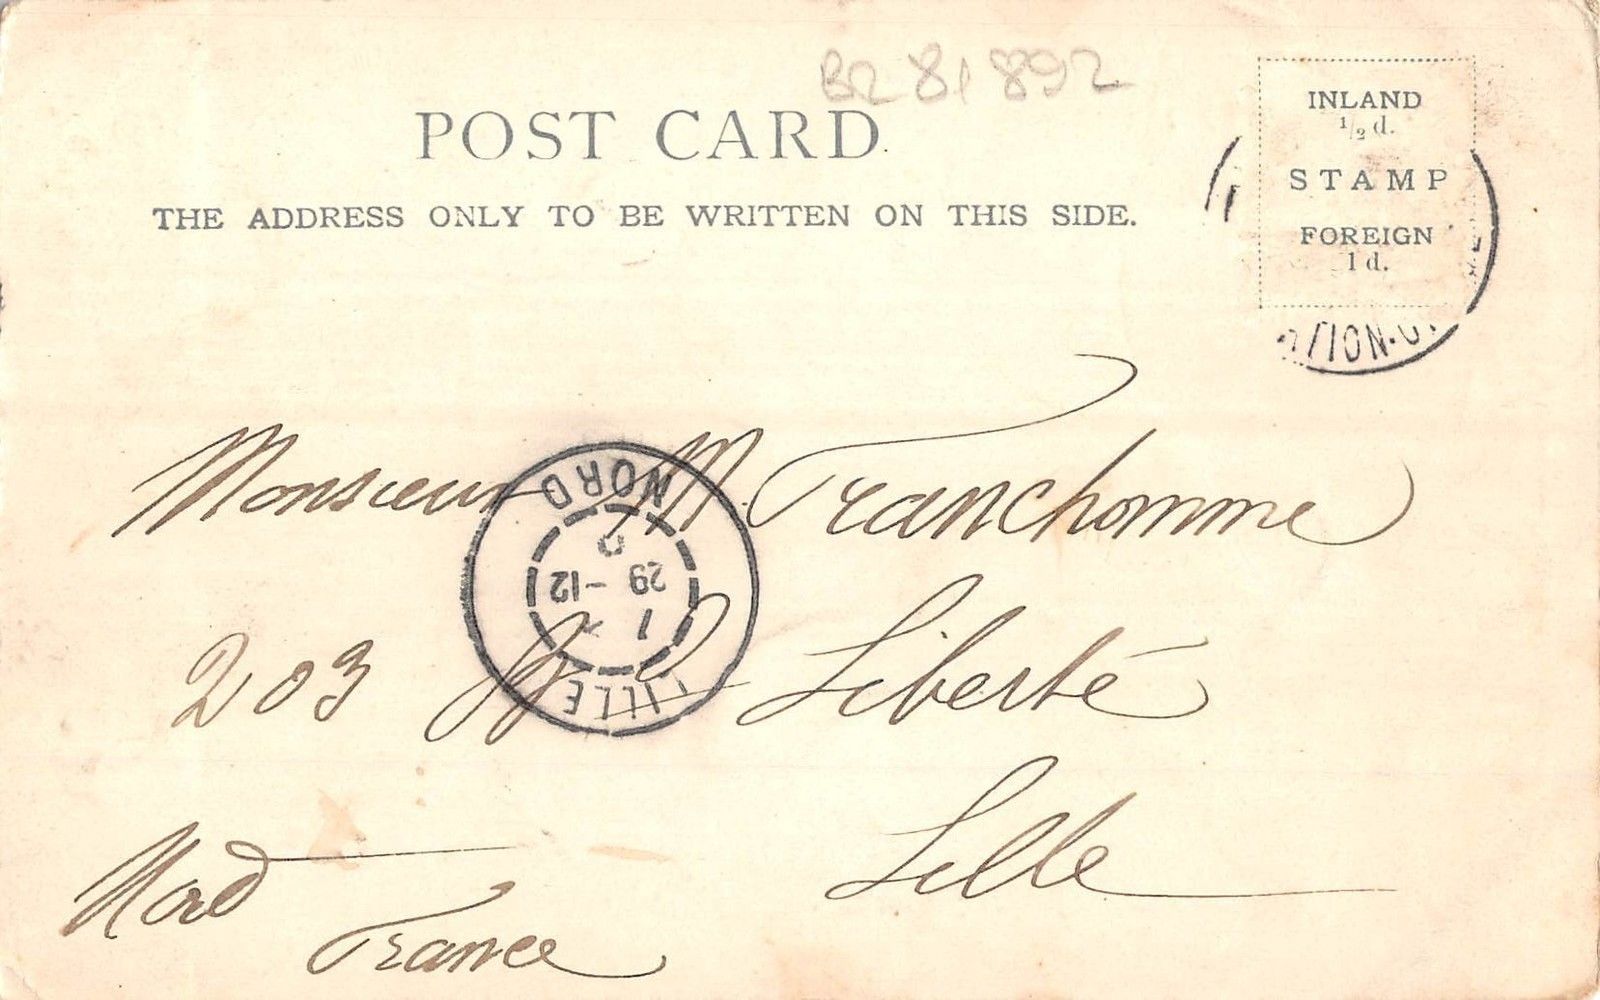 BR 81892
POST CARD.
THE ADDRESS ONLY TO BE WRITTEN ON THIS SIDE.
INLAND
1/2 d.
STAMP
FOREIGN
1 d.
TION.
Monsieur M. Franchomme
203 Bd Liberté
Lille
Nord
France
LILLE
1 *
29 -12
NORD